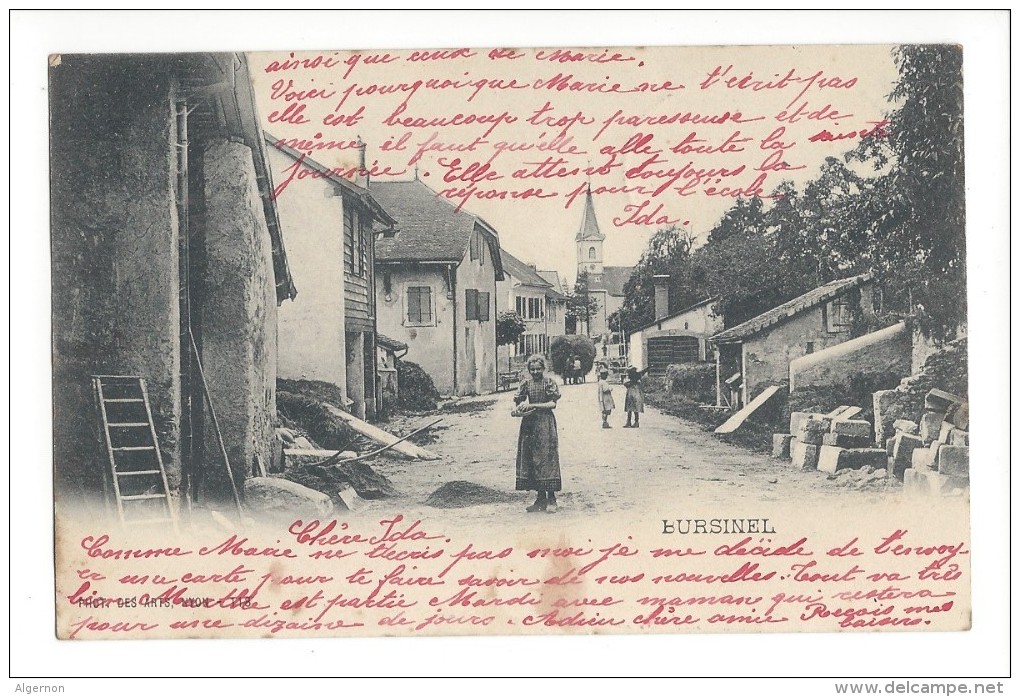 ainsi que ceux de Marie.
Voici pourquoi que Marie ne t'écrit pas
elle est beaucoup trop paresseuse et de
même il faut qu'elle alle toute la sainte
journée. Elle attend toujours la
réponse pour l'école
Ida.
BURSINEL
Chère Ida.
Comme Marie ne t'écris pas moi je me décide de t'envoy-
er une carte pour te faire savoir de nos nouvelles. Tout va très
bien. Marthe est partie Mardi avec maman qui restera
PHOT. DES ARTS, NYON 118
pour une dizaine de jours. Adieu chère amie Reçois mes
baisers.
Algernon
www.delcampe.net